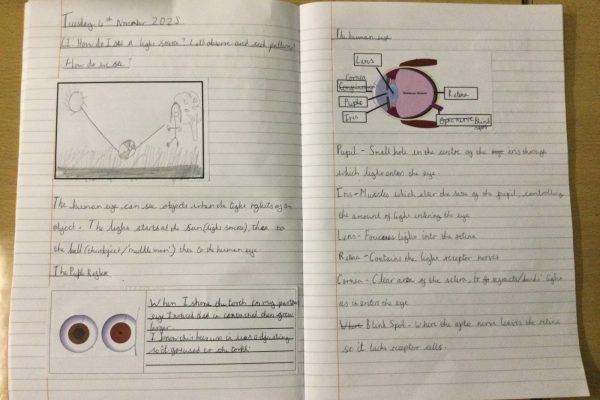 Tuesday 4th November 2025
LI: How do I see a light source? Let's observe and seek patterns
How do we see?
The human eye can see objects when the light reflects of an
object. The light starts at the Sun (light source), then to
the ball (the object / 'middle man') then to the human eye
The Pupil Reflex
When I shone the torch to my partners
eye I noticed that it contracted then grew
larger.
I know this because it was
so it got used to the torch.
The human eye
Lens
Cornea
Pupil
Iris
Retina
Optic nerve Blind
spot
Pupil - Small hole in the centre of the iris through
which light enters the eye.
Iris - Muscles which alter the size of the pupil, controlling
the amount of light entering the eye
Lens - Focuses light into the retina
Retina - Contains the light receptor nerves
Cornea - Clear area of the sclera, to refracts/'bends' light
as it enters the eye
Blind Spot - Where the optic nerve leaves the retina
so it lacks receptor cells.